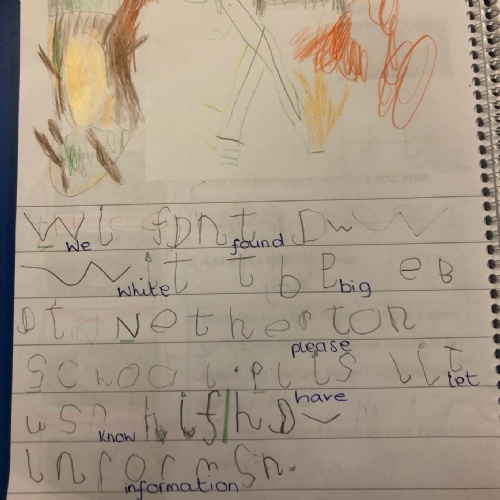 Wi fDnt D
We found
Wit big
white big
Dt Netherton
please
School. plis lit
let
us n hif hD
know have
informsn.
information